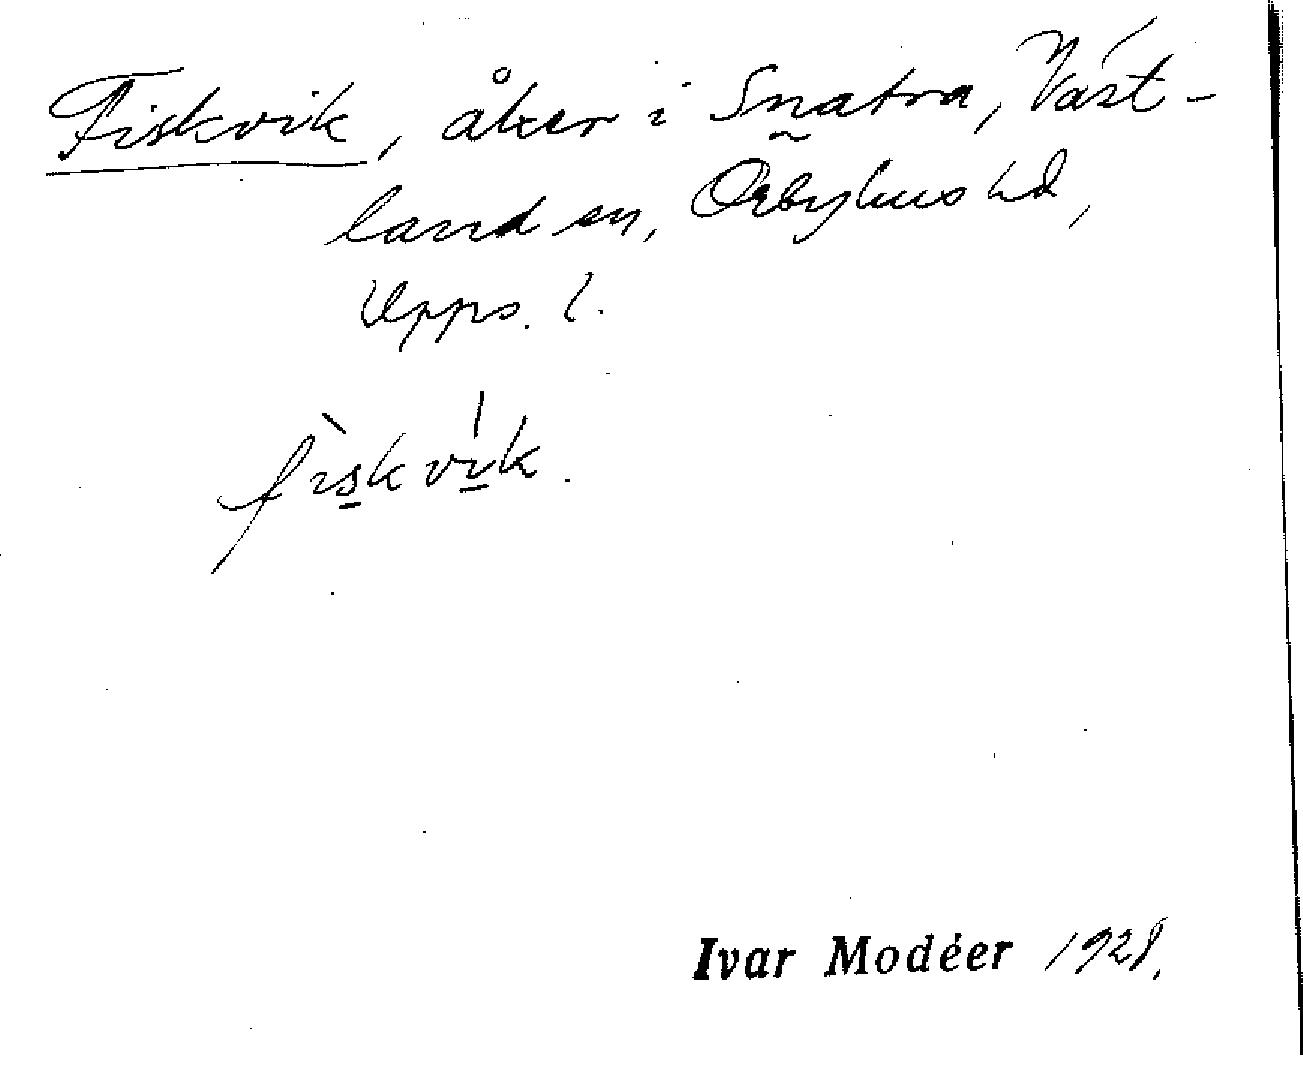 Fiskvik, åker i Snatra, Väst-
land sn, Örbyhus hd,
Upps. l.
fìskvík.
Ivar Modéer 1928.